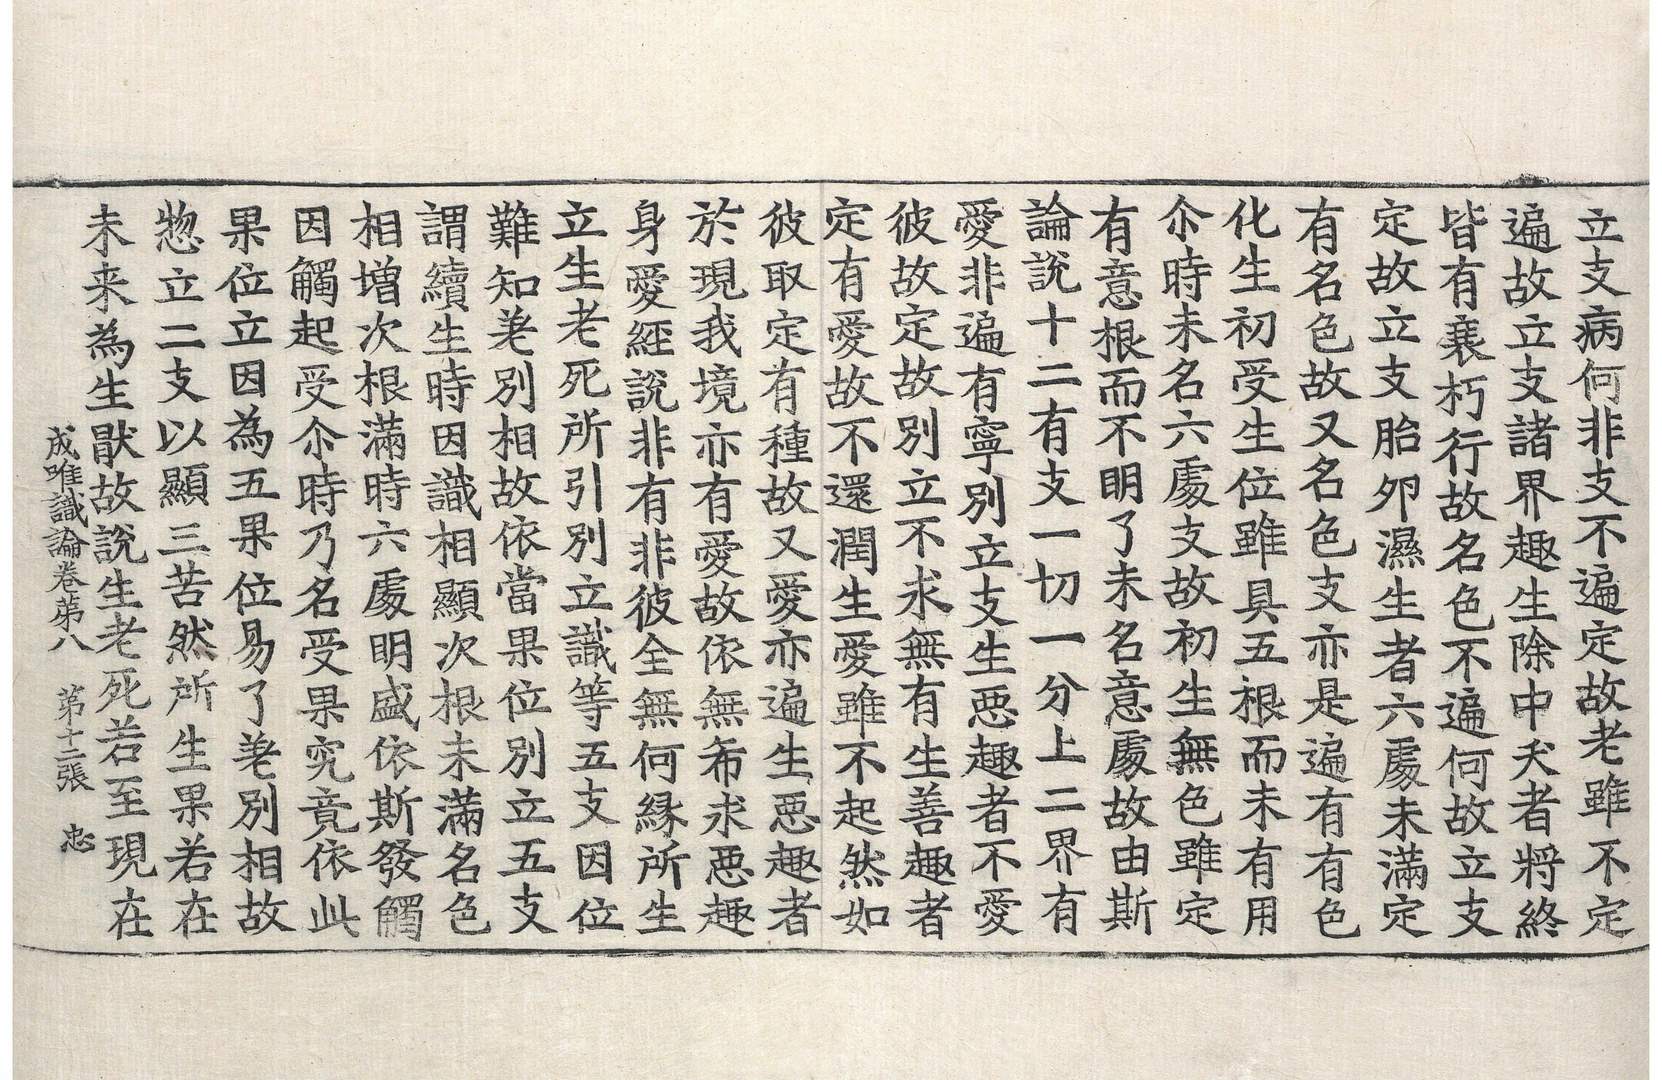 立支病何非支不遍定故老雖不定
遍故立支諸界趣生除中夭者將終
皆有衰朽行故名色不遍何故立支
定故立支胎卵濕生者六處未滿定
有名色故又名色支亦是遍有有色
化生初受生位雖具五根而未有用
尒時未名六處支故初生無色雖定
有意根而不明了未名意處故由斯
論說十二有支一切一分上二界有
愛非遍有寧別立支生惡趣者不愛
彼故定故別立不求無有生善趣者
定有愛故不還潤生愛雖不起然如
彼取定有種故又愛亦遍生惡趣者
於現我境亦有愛故依無希求惡趣
身愛經說非有非彼全無何緣所生
立生老死所引別立識等五支因位
難知差別相故依當果位別立五支
謂續生時因識相顯次根未滿名色
相增次根滿時六處明盛依斯發觸
因觸起受尒時乃名受果究竟依此
果位立因為五果位易了差別相故
惣立二支以顯三苦然所生果若在
未来為生猒故說生老死若至現在
成唯識論卷第八 第十二張 忠